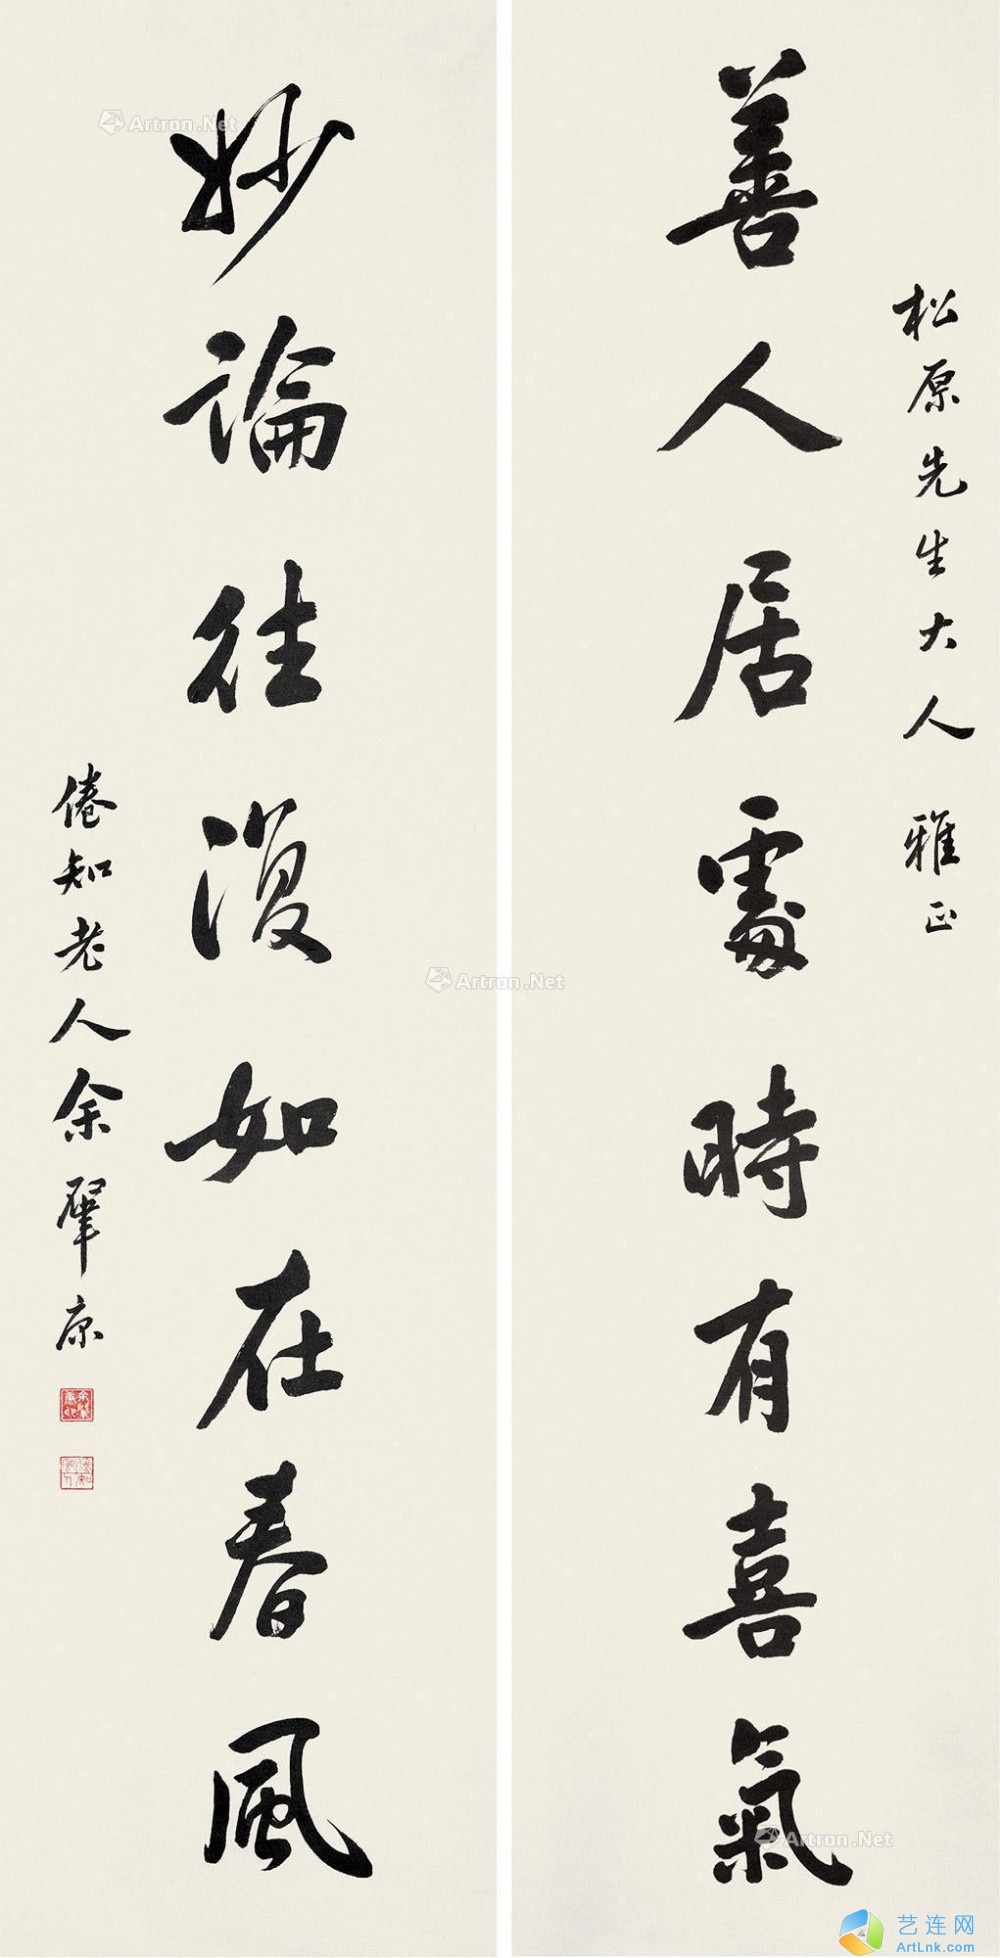 松原先生大人雅正
善人居處時有喜氣
妙論往復如在春風
倦知老人余肇康
Artron.Net
Artron.Net
Artron.Net
艺连网
ArtLnk.com